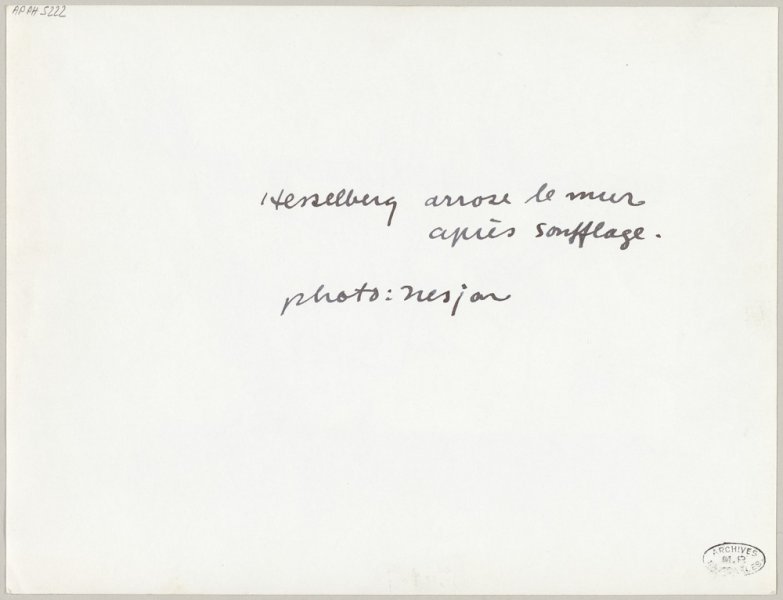 APAH 5222
Hesselberg arrose le mur
après soufflage.
photo: nesjar
ARCHIVES